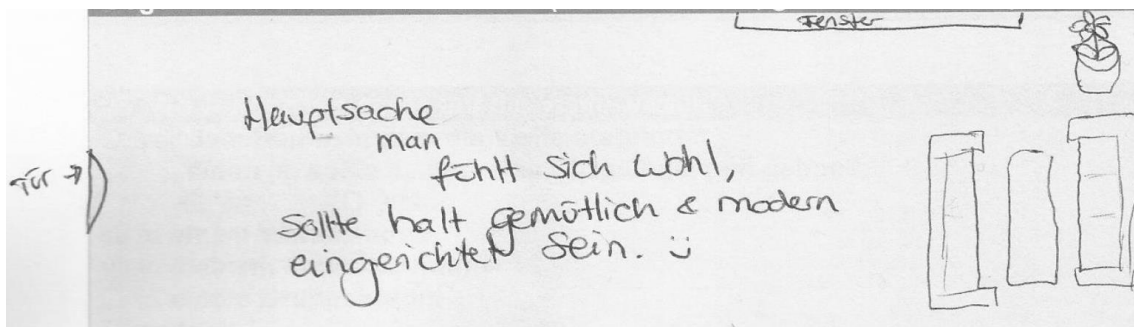 Fenster
Hauptsache
man
fühlt sich wohl,
Tür →
sollte halt gemütlich & modern
eingerichtet sein. :)